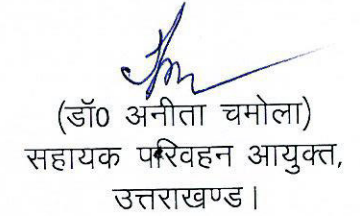 (डॉ0 अनीता चमोला)
सहायक परिवहन आयुक्त,
उत्तराखण्ड।